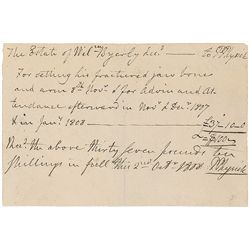 The Estate of Wilm Byerly Decd. to
For setting his fractured jaw bone
and arm 8th Novr & for Advice and At-
tendance afterward in Novr & Decr 1807
& in Jany 1808
£37-10-0
= $100
Recd the above thirty seven pounds ten
shillings in full this 2nd Octr 1808